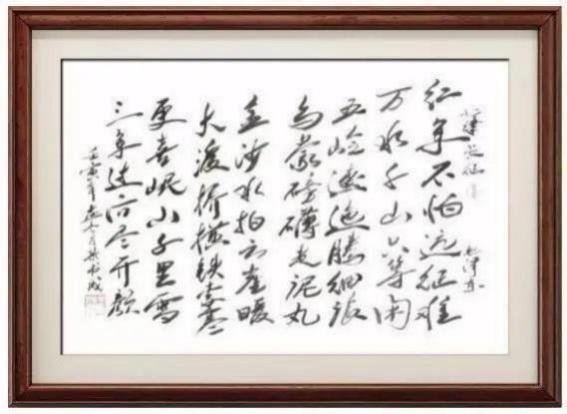 长征 毛泽东
红军不怕远征难
万水千山只等闲
五岭逶迤腾细浪
乌蒙磅礴走泥丸
金沙水拍云崖暖
大渡桥横铁索寒
更喜岷山千里雪
三军过后尽开颜
壬寅年